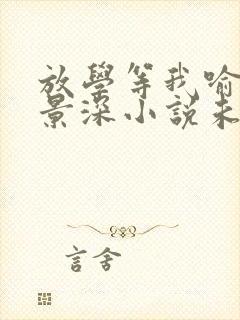 放學等我喻
景深小說未
言舍